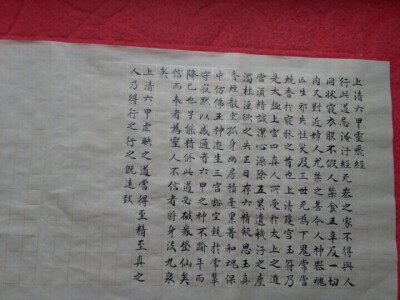 上清六甲靈飛經
行此道忌淹汙經死喪之家不得與人
同牀寢衣服不假人禁食五辛及一切
肉又對近婦人尤禁之甚令人神喪魂
亡生邪失性災及三世死為下鬼常當
燒香於寢牀之首也上清瓊宮玉符乃
是太極上宮四真人所受於太上之道
當須精誠潔心澡除五累遺穢汙之塵
濁杜淫欲之失正目存六精凝思玉真
香煙散室孤身幽房積毫累著和魂保
中仿佛五神遊生三宮豁空競於常輩
守寂默以感通者六甲之神不踰年而
降已也子能精修此道必破券登仙矣
信而奉者為靈人不信者將身沒九泉
矣
上清六甲虛映之道當得至精至真之
人乃得行之行之既速致